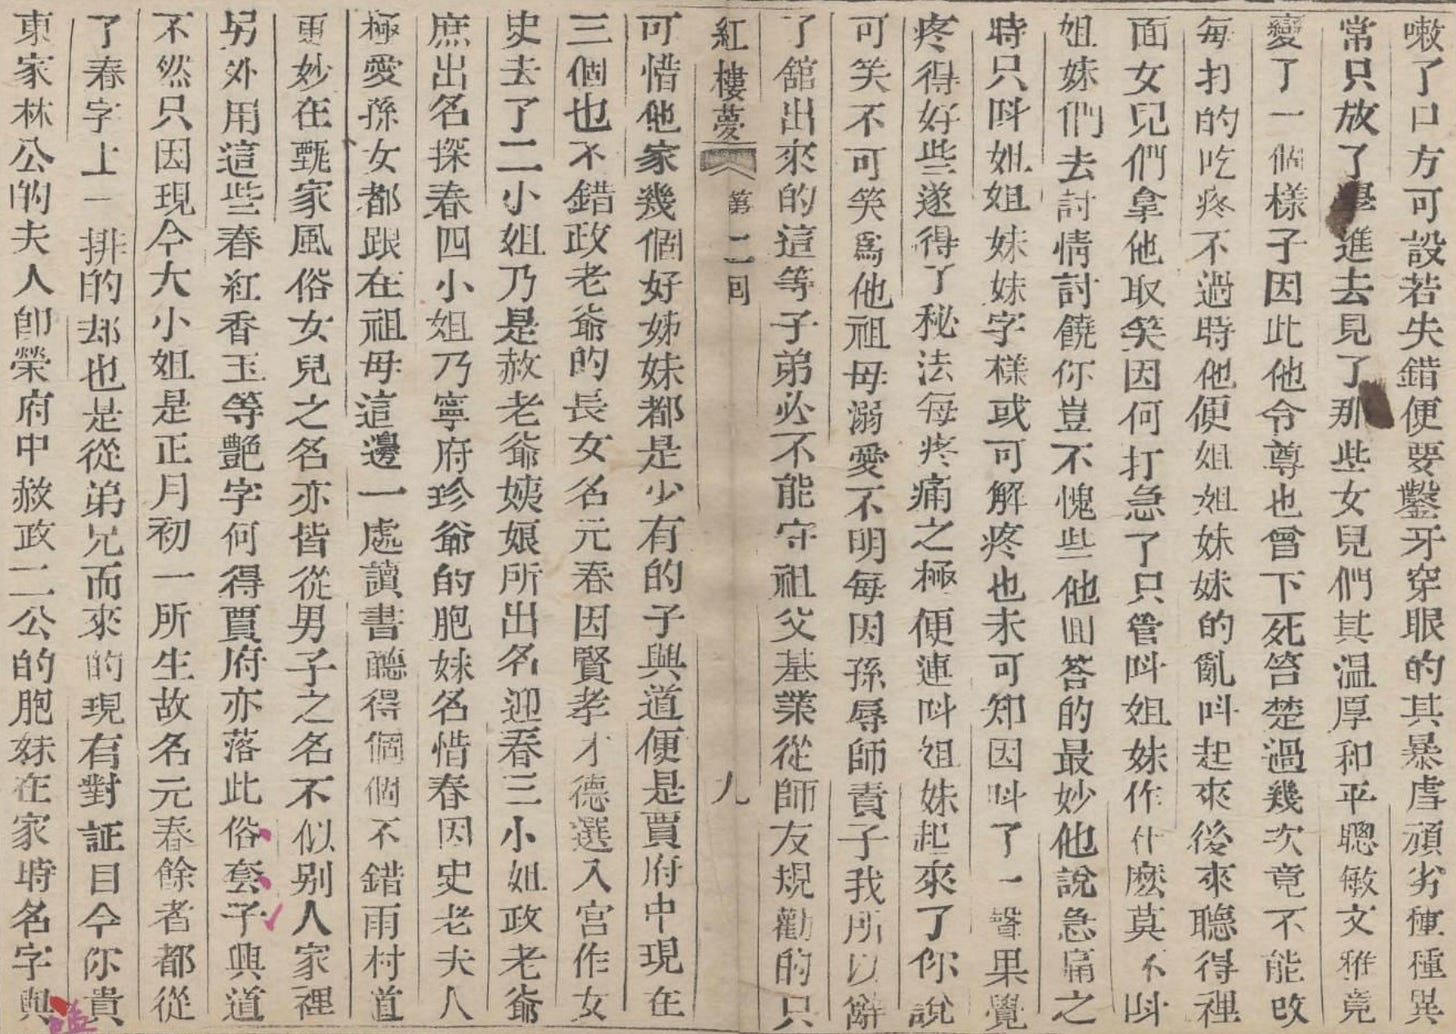 嗽了口方可設若失錯便要鑿牙穿眼的其暴虐頑劣種種異
常只放了學進去見了那些女兒們其温厚和平聰敏文雅竟
變了一個樣子因此他令尊也曾下死笞楚過幾次竟不能改
每打的吃疼不過時他便姐姐妹妹的亂叫起來後來聽得裡
面女兒們拿他取笑因何打急了只管叫姐妹作什麽莫不叫
姐妹們去討情討饒你豈不愧些他回答的最妙他說急痛之
時只叫姐姐妹妹字樣或可解疼也未可知因叫了一聲果覺
疼得好些遂得了秘法每疼痛之極便連叫姐妹起來了你說
可笑不可笑爲他祖母溺愛不明每因孫辱師責子我所以辭
了舘出來的這等子弟必不能守祖父基業從師友規勸的只
紅樓夢 第二回 九
可惜他家幾個好姊妹都是少有的子興道便是賈府中現在
三個也不錯政老爺的長女名元春因賢孝才德選入宮作女
史去了二小姐乃是赦老爺姨娘所出名迎春三小姐政老爺
庶出名探春四小姐乃寧府珍爺的胞妹名惜春因史老夫人
極愛孫女都跟在祖母這邊一處讀書聽得個個不錯雨村道
更妙在甄家風俗女兒之名亦皆從男子之名不似别人家裡
另外用這些春紅香玉等艷字何得賈府亦落此俗套子興道
不然只因現今大小姐是正月初一所生故名元春餘者都從
了春字上一排的却也是從弟兄而來的現有對証目今你貴
東家林公的夫人卽榮府中赦政二公的胞妹在家時名字與